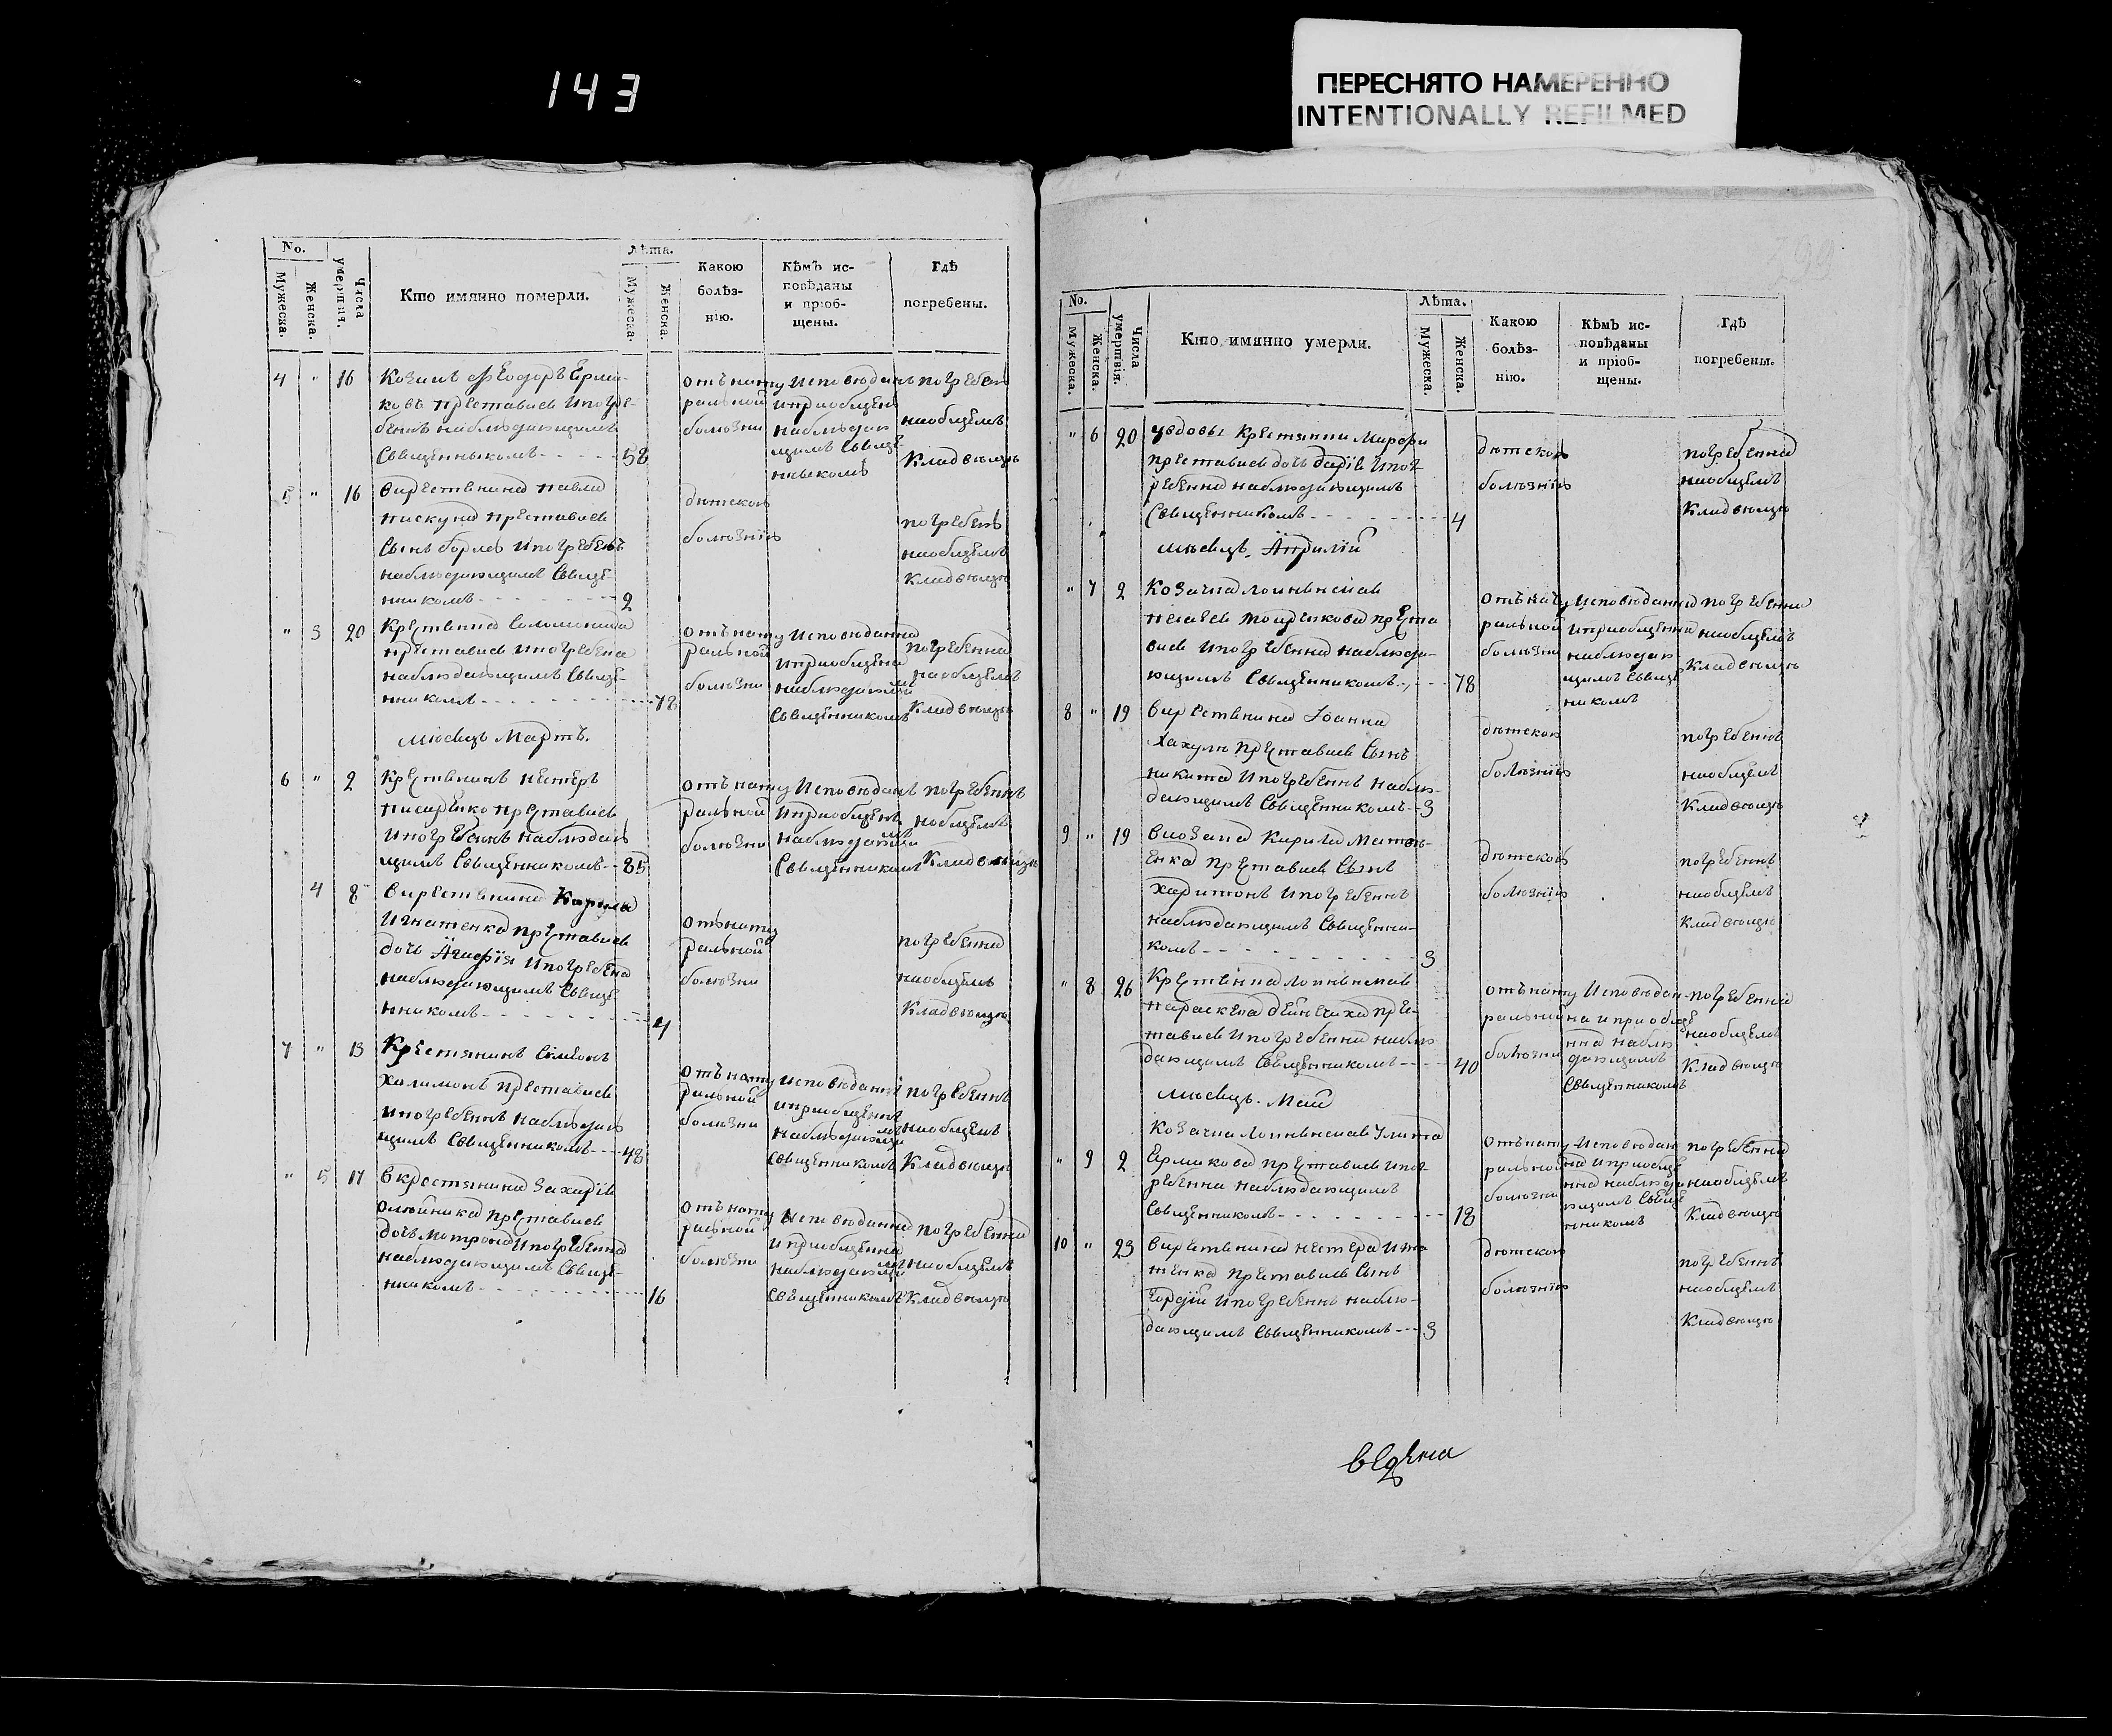 143
ПЕРЕСНЯТО НАМЕРЕННО
INTENTIONALLY REFILMED
No.
Мужеска.
Женска.
Числа умертвія.
Кто имянно померли.
Лѣта.
Мужеска.
Женска.
Какою болѣз-нію.
Кѣмъ ис-повѣданы и пріоб-щены.
Гдѣ погребены.
4 " 16 Козакъ Феодоръ Ерма-
ковъ преставися и погре-
бенъ наблюдающимъ
священникомъ 58
отъ нату
ральной
болѣзни
исповѣданъ
и приобщенъ
наблюдаю
щимъ свяще
нникомъ
погребенъ
наобщемъ
кладвѣщѣ
5 " 16 Укрестянина Павла
Пискуна преставися
сынъ Борисъ и погребенъ
наблюдающимъ свяще
нникомъ 2
дѣтскою
болѣзнію
погребенъ
наобщемъ
кладвѣщѣ
" 3 20 Крестянка Соломонида
преставися и погребена
наблюдающимъ свяще-
нникомъ 78
отъ нату
ральной
болѣзни
исповѣданна
и приобщена
наблюдающимъ
священникомъ
погребенна
наобщемъ
кладвѣщѣ
мѣсяцъ Мартъ.
6 " 2 Крестянинъ Нестеръ
Писаренко преставися
и погребенъ наблюдаю
щимъ священникомъ 85
отъ нату
ральной
болѣзни
исповѣданъ
и приобщенъ
наблюдающимъ
священникомъ
погребеннъ
наобщемъ
кладвѣщѣ
4 8 Укрестянина Карпа
Игнатенка преставися
дочь Агафія и погребена
наблюдающимъ свяще
нникомъ 4
отъ нату
ральной
болѣзни
погребена
наобщемъ
кладвѣщѣ
7 " 13 Крестянинъ Симеонъ
Халимонъ преставися
и погребеннъ наблюдаю
щимъ священникомъ 48
отъ нату
ральной
болѣзни
исповѣданъ
и приобщенъ
наблюдающимъ
священникомъ
погребеннъ
наобщемъ
кладвѣщѣ
" 5 17 Укрестянина Захарія
Олѣйника преставися
дочь Матрона и погребенна
наблюдающимъ свяще-
нникомъ 16
отъ нату
ральной
болѣзни
исповѣданна
и приобщенна
наблюдающимъ
священникомъ
погребенна
наобщемъ
кладвѣщѣ
299
No.
Мужеска.
Женска.
Числа умертвія.
Кто имянно умерли.
Лѣта.
Мужеска.
Женска.
Какою болѣз-нію.
Кѣмъ ис-повѣданы и пріоб-щены.
Гдѣ погребены.
" 6 20 Увдовы крестянки Марфы
преставися дочь Дарія и пог-
ребенна наблюдающимъ
священникомъ 4
дѣтскою
болѣзнію
погребенна
наобщемъ
кладвѣщѣ
мѣсяцъ Априлій
" 7 2 Козачка
преста
вися и погребенна наблюда-
ющимъ священникомъ 78
отъ нату
ральной
болѣзни
исповѣданна
и приобщенна
наблюдаю
щимъ свяще
никомъ
погребенна
наобщемъ
кладвѣщѣ
8 " 19 Укрестянина Іоанна
преставися сынъ
Никита и погребеннъ наблю-
дающимъ священникомъ 3
дѣтскою
болѣзнію
погребеннъ
наобщемъ
кладвѣщѣ
9 " 19 Укозака Кирила
преставися сынъ
Харитонъ и погребеннъ
наблюдающимъ священни-
комъ 3
дѣтскою
болѣзнію
погребеннъ
наобщемъ
кладвѣщѣ
" 8 26 Крестянка
прес-
тавися и погребенна наблю
дающимъ священникомъ 40
отъ нату
ральной
болѣзни
исповѣдан-
на и приобще
нна наблю
дающимъ
священникомъ
погребенна
наобщемъ
кладвѣщѣ
мѣсяцъ. Май
Козачка Улита
" 9 2 Ермакова преставися и пог-
ребенна наблюдающимъ
священникомъ 18
отъ нату
ральной
болѣзни
исповѣдан
на и приобще
нна наблюда
ющимъ свяще
нникомъ
погребенна
наобщемъ
кладвѣщѣ
10 " 23 Укрестянина Нестера
преставися сынъ
Гордій и погребеннъ наблю-
дающимъ священникомъ 3
дѣтскою
болѣзнію
погребеннъ
наобщемъ
кладвѣщѣ